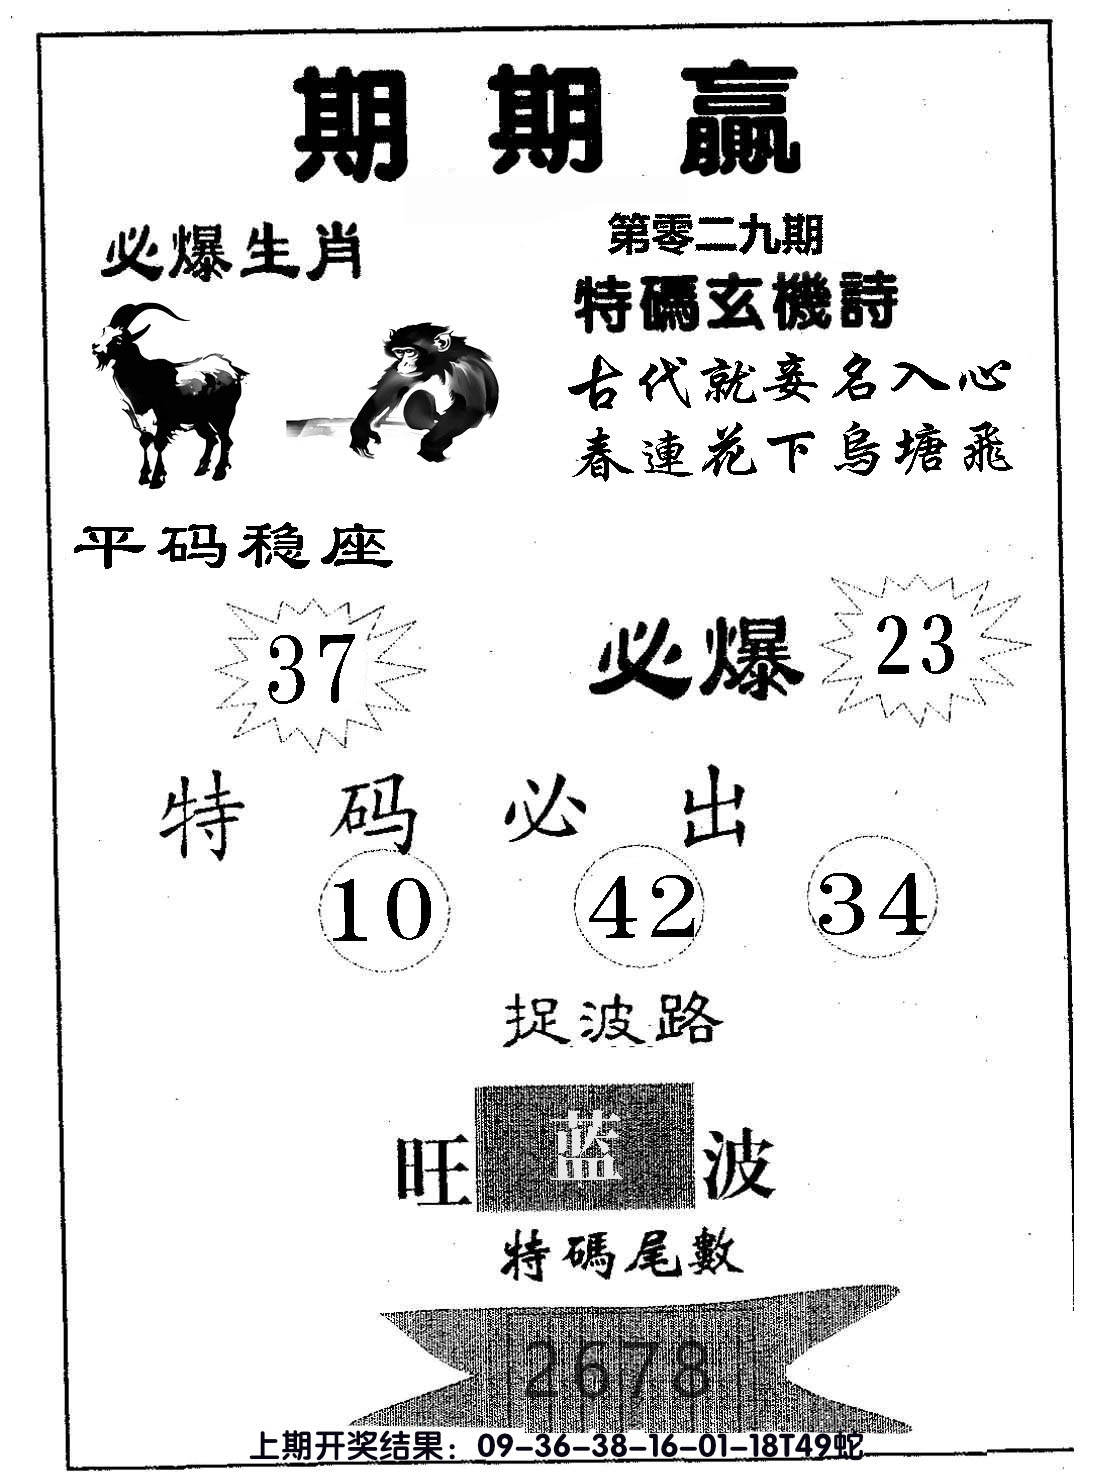 期期赢
必爆生肖
第零二九期
特碼玄機詩
古代就妾名入心
春連花下烏塘飛
平码稳座
37
必爆 23
特码必出
10 42 34
捉波路
旺 蓝 波
特碼尾數
2678
上期开奖结果：09-36-38-16-01-18T49蛇